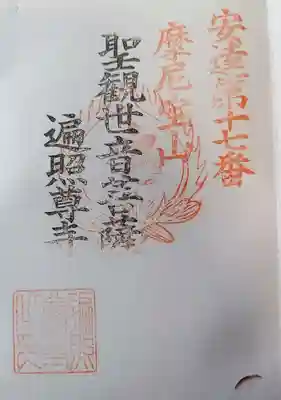 安達第十七番
摩尼山
聖観世音菩薩
遍照尊寺